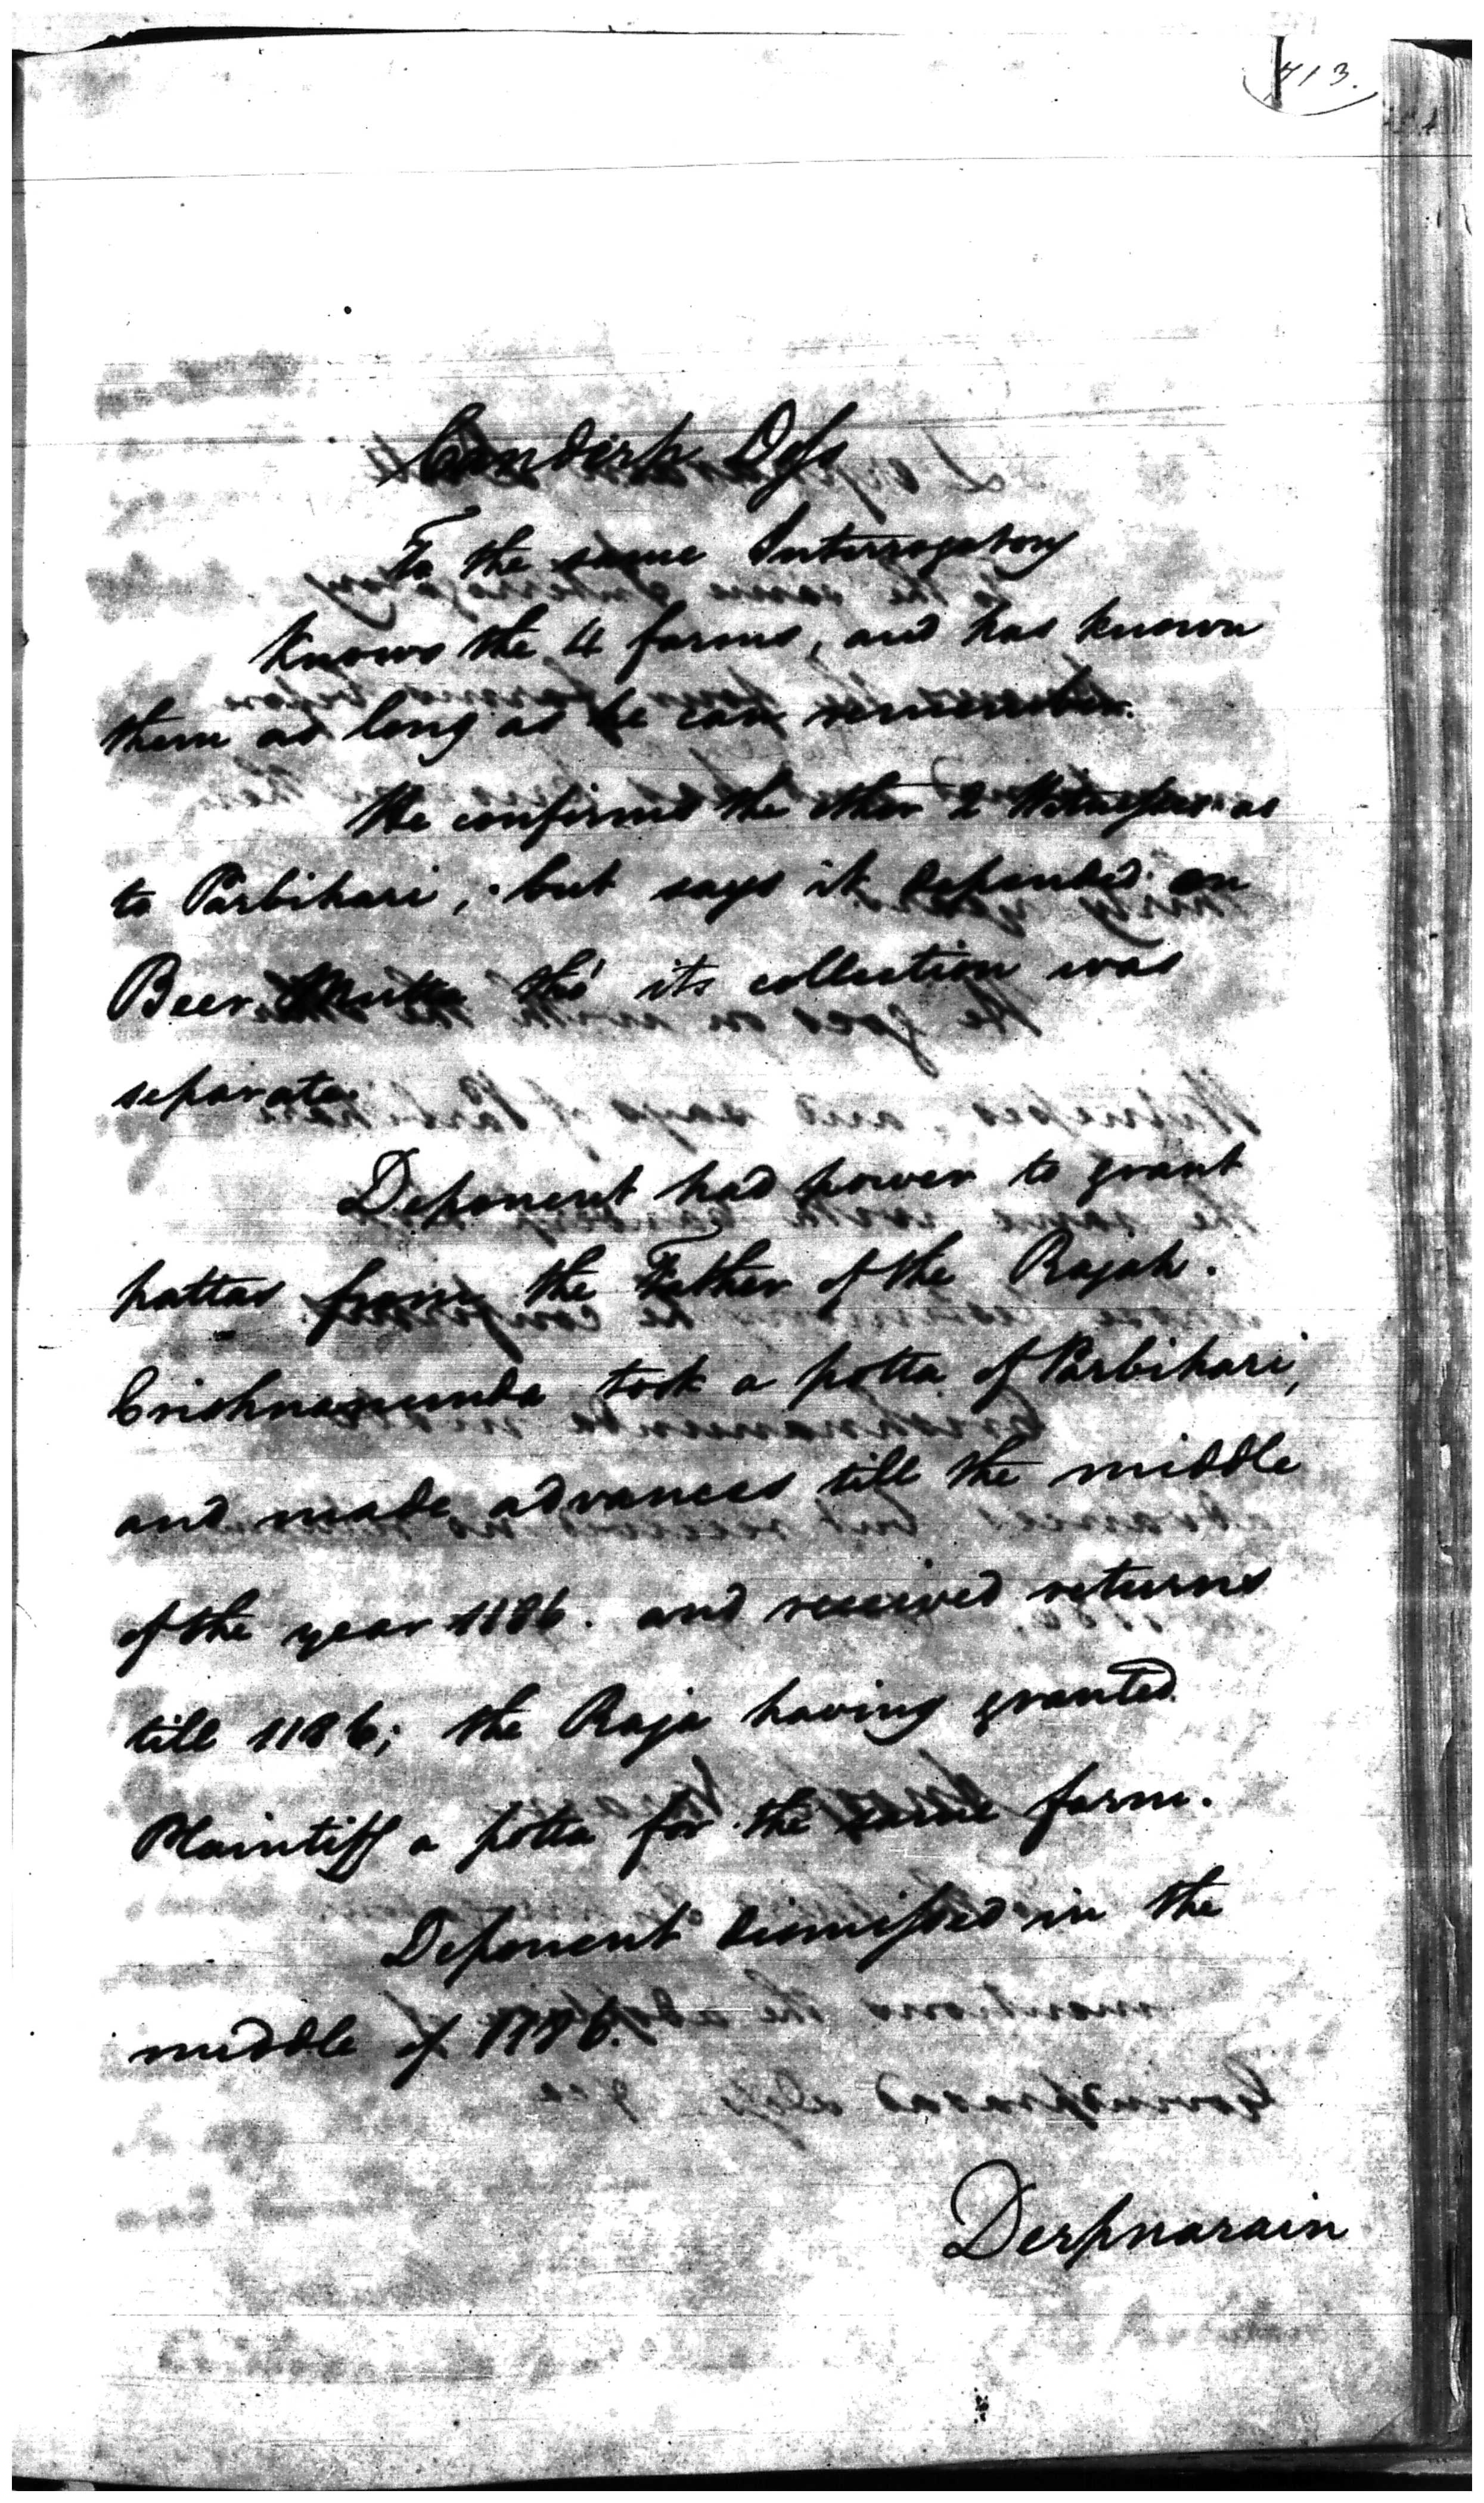 413.
Canderp Doss
To the same Interrogatory
Knows the 4 farms, and has known
them as long as he can remember.
He confirms the other 2 Witnesses as
to Parbihari; but says it depended on
Beer tho' its collection was
separate.
Deponent had power to grant
pattas from the Father of the Rajah.
Crishnanunda took a potta of Parbihari,
and made advances till the middle
of the year 1186. and received returns
till 1186; the Raja having granted
Plaintiff a potta for the same farm.
Deponent dismissed in the
middle of 1186.
Derpnarain